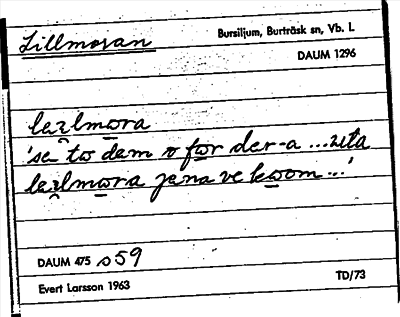 Lillmoran
Bursiljum, Burträsk sn, Vb. l.
DAUM 1296
'se to dem o for der-a ...
jena ve kwom...'
DAUM 475 s 59
Evert Larsson 1963
TD/73